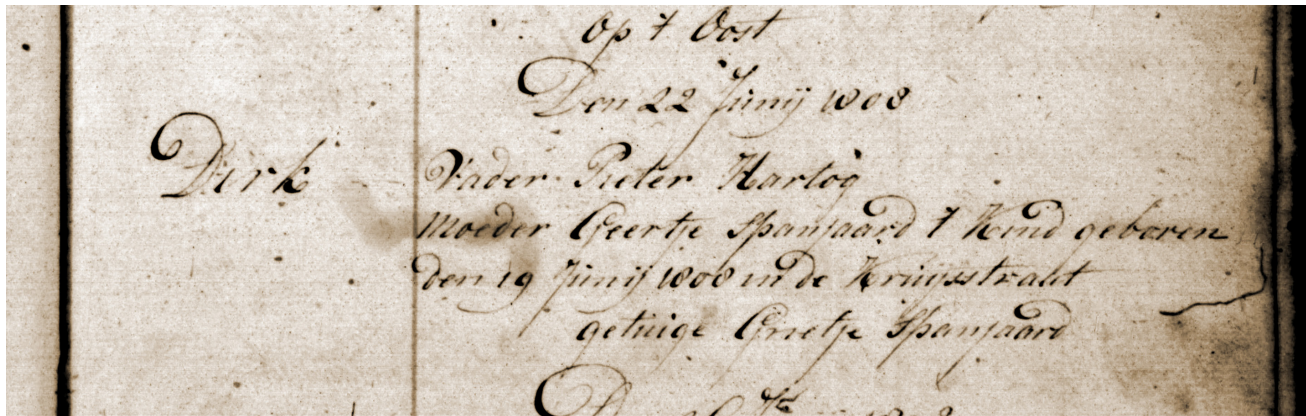 Op t Oost
Den 22 Junij 1808
Dirk
Vader Pieter Hartog
Moeder Geertje Spanjaard t Kind geboren
den 19 Junij 1808 in de Kruijsstraat
getuige Grietje Spanjaard